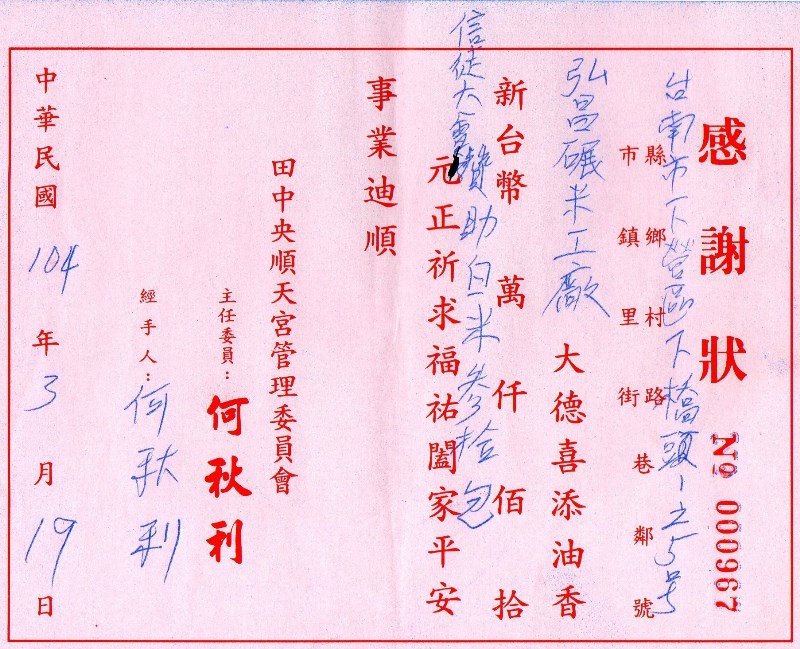 感謝狀
№ 000967
台南市下營區下橋頭1之5号
縣鄉村路鄰號
市鎮里街巷
弘昌碾米工廠
大德喜添油香
新台幣萬仟佰拾
信徒大會贊助白米參拾包
元正祈求福祐闔家平安
事業迪順
田中央順天宮管理委員會
主任委員：何秋利
經手人：何秋利
中華民國104年3月19日